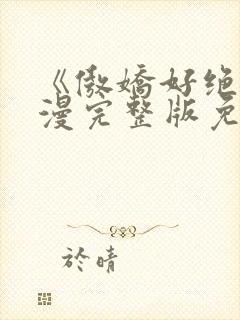 《傲娇好绝
漫完整版免
於晴